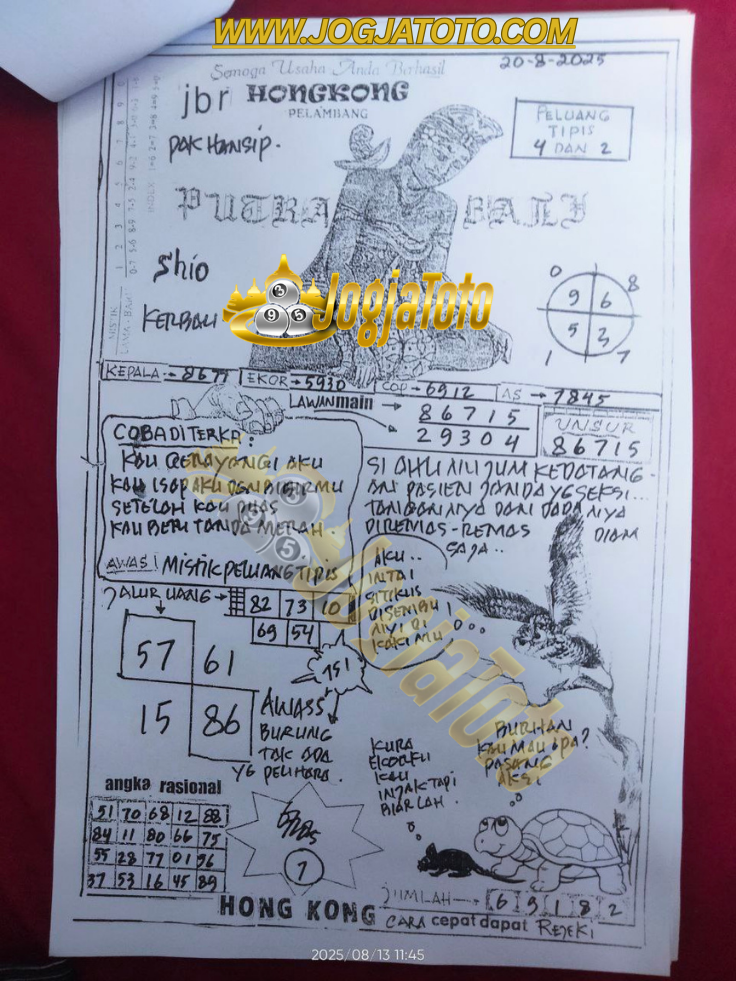 WWW.JOGJATOTO.COM
Semoga Usaha Anda Berhasil
20-8-2025
jbr HONGKONG
PELAMBANG
PELUANG
TIPIS
4 DAN 2
PAK HANSIP.
PUTRA BALI
Shio
KERBAU
JogjaToto
0 8
9 6
5 3
1 7
KEPALA → 8677 EKOR → 5930 COP → 6912 AS → 7845
LAWAN main → 86715
29304
UNSUR
86715
COBA DITERKA:
KAU AKU
KAU ISAP AKU DGN BIBIRMU
SETELAH KAU PUAS
KAU BERI TANDA MERAH.
AWAS! MISTIK PELUANG TIPIS
KEDATANG-
AN PASIEN JANDA YG SEKSI...
TANGANNYA DAN DADANYA
DIREMAS-REMAS DIAM
SAJA..
AKU..
INTAI
SITIKUS
DISEMBU
NYI DI
KAKIMU
JALUR UANG → 82 73 10
69 54
57 61
15 86
151
AWASS
BURUNG
TAK ADA
YG PELIHARA.
KURA
EKORKU
KAU
INJAK TAPI
BIARLAH.
BURHAN
KAU MAU APA?
PASANG
AKSI
angka rasional
51 70 68 12 88
84 11 80 66 75
55 28 77 01 56
37 53 16 45 89
7
JUMLAH → 6 9 1 8 2
HONG KONG CARA cepat dapat REJEKI
2025/08/13 11:45